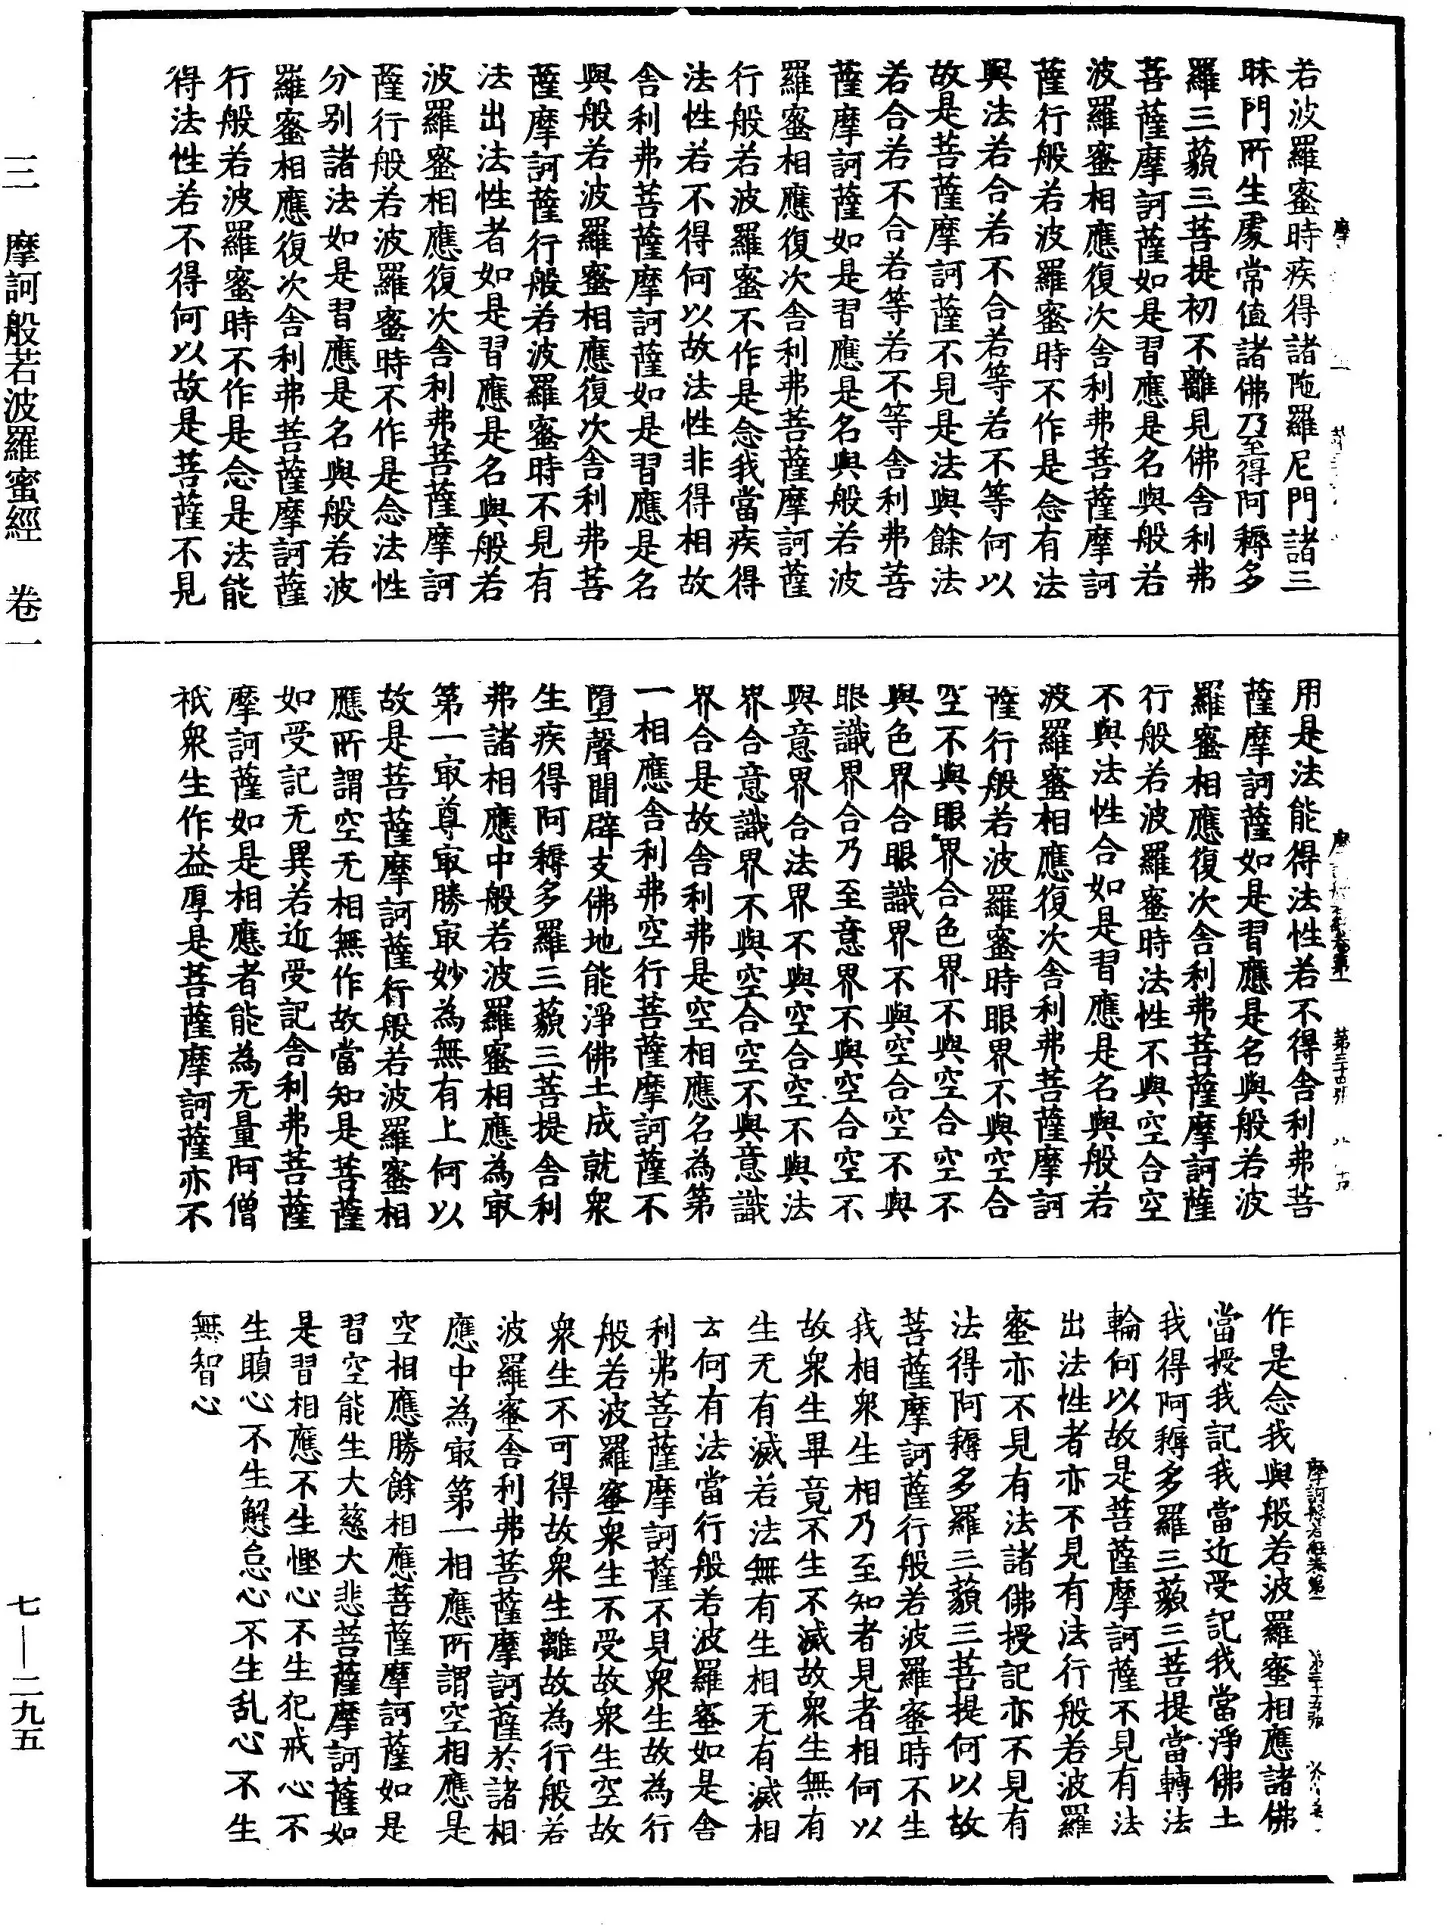 若波羅蜜時疾得諸陁羅尼門諸三
昧門所生處常值諸佛乃至得阿耨多
羅三藐三菩提初不離見佛舍利弗
菩薩摩訶薩如是習應是名與般若
波羅蜜相應復次舍利弗菩薩摩訶
薩行般若波羅蜜時不作是念有法
與法若合若不合若等若不等何以
故是菩薩摩訶薩不見是法與餘法
若合若不合若等若不等舍利弗菩
薩摩訶薩如是習應是名與般若波
羅蜜相應復次舍利弗菩薩摩訶薩
行般若波羅蜜不作是念我當疾得
法性若不得何以故法性非得相故
舍利弗菩薩摩訶薩如是習應是名
與般若波羅蜜相應復次舍利弗菩
薩摩訶薩行般若波羅蜜時不見有
法出法性者如是習應是名與般若
波羅蜜相應復次舍利弗菩薩摩訶
薩行般若波羅蜜時不作是念法性
分別諸法如是習應是名與般若波
羅蜜相應復次舍利弗菩薩摩訶薩
行般若波羅蜜時不作是念是法能
得法性若不得何以故是菩薩不見
用是法能得法性若不得舍利弗菩
薩摩訶薩如是習應是名與般若波
羅蜜相應復次舍利弗菩薩摩訶薩
行般若波羅蜜時法性不與空合空
不與法性合如是習應是名與般若
波羅蜜相應復次舍利弗菩薩摩訶
薩行般若波羅蜜時眼界不與空合
空不與眼界合色界不與空合空不
與色界合眼識界不與空合空不與
眼識界合乃至意界不與空合空不
與意界合法界不與空合空不與法
界合意識界不與空合空不與意識
界合是故舍利弗是空相應名為第
一相應舍利弗空行菩薩摩訶薩不
墮聲聞辟支佛地能淨佛土成就衆
生疾得阿耨多羅三藐三菩提舍利
弗諸相應中般若波羅蜜相應為㝡
第一㝡尊㝡勝㝡妙為無有上何以
故是菩薩摩訶薩行般若波羅蜜相
應所謂空无相無作故當知是菩薩
如受記无異若近受記舍利弗菩薩
摩訶薩如是相應者能為无量阿僧
祇衆生作益厚是菩薩摩訶薩亦不
作是念我與般若波羅蜜相應諸佛
當授我記我當近受記我當淨佛土
我得阿耨多羅三藐三菩提當轉法
輪何以故是菩薩摩訶薩不見有法
出法性者亦不見有法行般若波羅
蜜亦不見有法諸佛授記亦不見有
法得阿耨多羅三藐三菩提何以故
菩薩摩訶薩行般若波羅蜜時不生
我相衆生相乃至知者見者相何以
故衆生畢竟不生不滅故衆生無有
生无有滅若法無有生相无有滅相
云何有法當行般若波羅蜜如是舍
利弗菩薩摩訶薩不見衆生故為行
般若波羅蜜衆生不受故衆生空故
衆生不可得故衆生離故為行般若
波羅蜜舍利弗菩薩摩訶薩於諸相
應中為㝡第一相應所謂空相應是
空相應勝餘相應菩薩摩訶薩如是
習空能生大慈大悲菩薩摩訶薩如
是習相應不生慳心不生犯戒心不
生瞋心不生懈怠心不生乱心不生
無智心
三 摩訶般若波羅蜜經 卷一
七—二九五